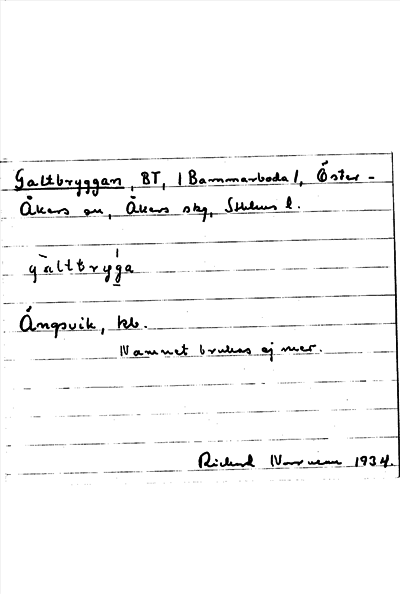 Galtbryggan, BT, (Bammarboda), Öster-
Åkers sn, Åkers skg, Sthlms l.
gàltbrýga
Ängsvik, kb.
Namnet brukas ej mer.
Rickard Norrman 1934.